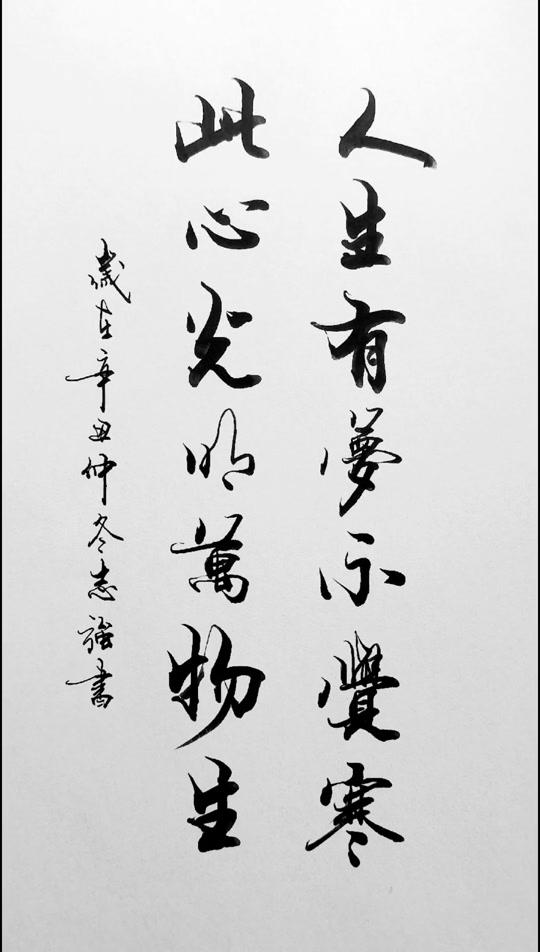 人生有夢不覺寒
此心光明萬物生
歲在辛丑仲冬志強書